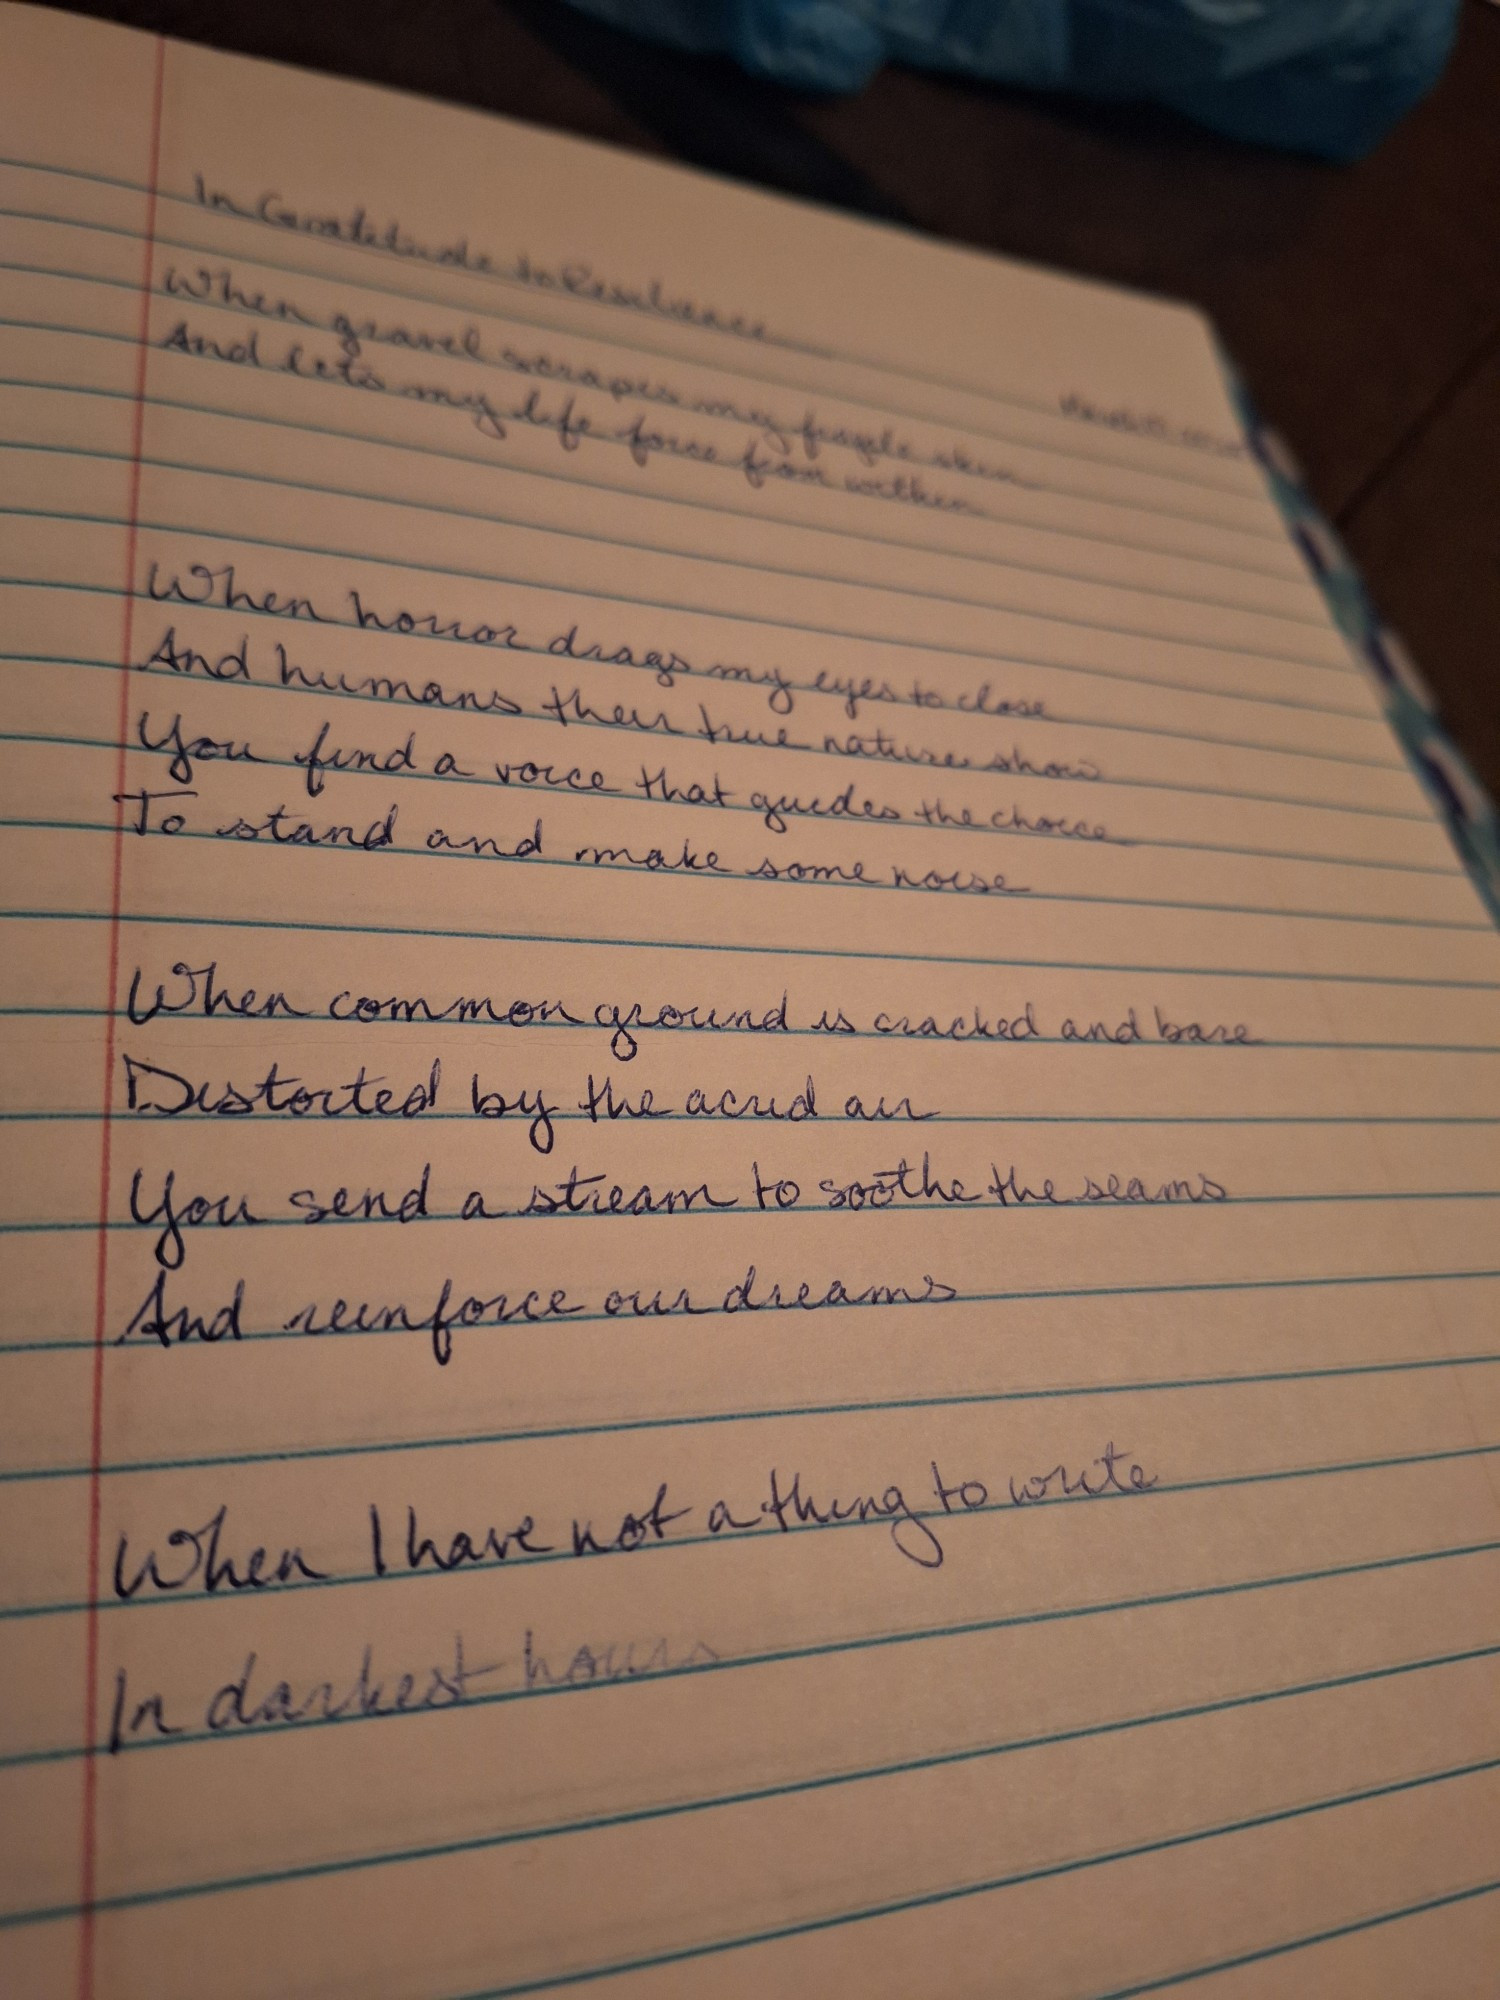 In Gratitude to Resilience
When gravel scrapes my fragile skin
And lets my life force from within
When horror drags my eyes to close
And humans their true nature show
You find a voice that guides the choice
To stand and make some noise
When common ground is cracked and bare
Distorted by the acrid air
You send a stream to soothe the seams
And reinforce our dreams
When I have not a thing to write
In darkest hours